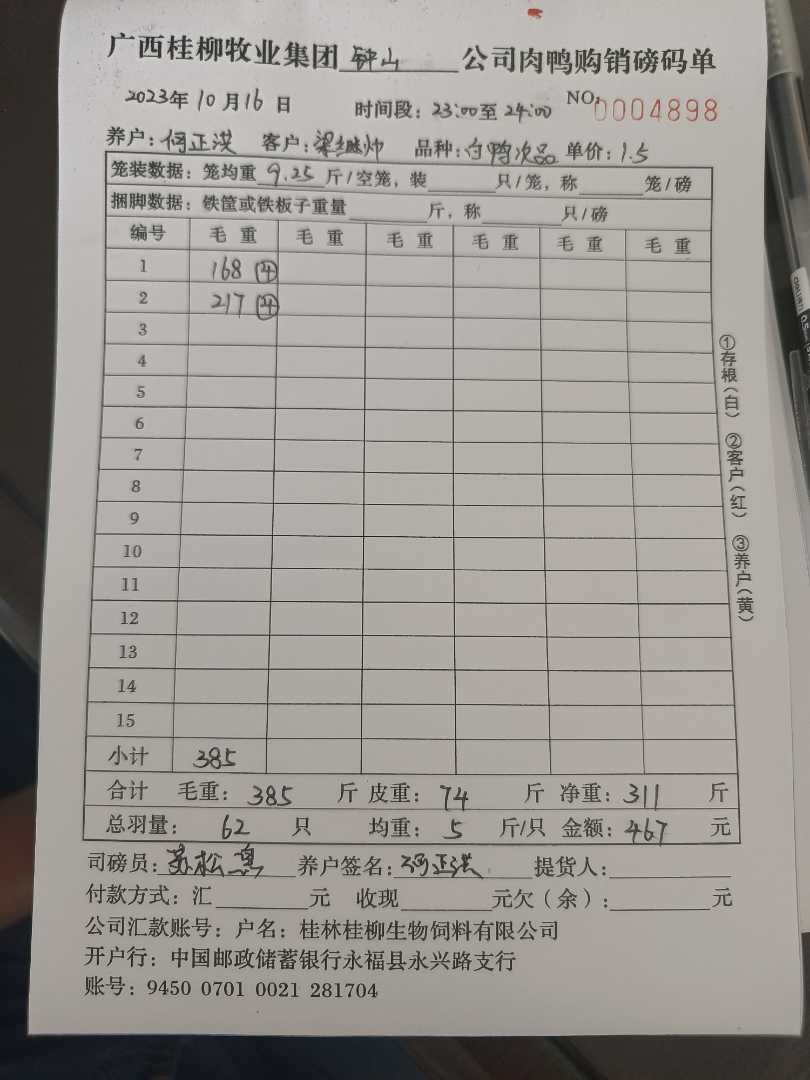 广西桂柳牧业集团 钟山 公司肉鸭购销磅码单
2023年10月16日 时间段：23:00至24:00 NO:0004898
养户：何正洪 客户：梁继帅 品种：白鸭次品 单价：1.5
笼装数据：笼均重 9.25 斤/空笼，装____只/笼，称____笼/磅
捆脚数据：铁筐或铁板子重量____斤，称____只/磅
编号 毛重 毛重 毛重 毛重 毛重 毛重
1 168 ④
2 217 ④
3
4
5
6
7
8
9
10
11
12
13
14
15
小计 385
合计 毛重：385 斤 皮重：74 斤 净重：311 斤
总羽量：62 只 均重：5 斤/只 金额：467 元
司磅员：苏松 养户签名：何正洪 提货人：
付款方式：汇____元 收现____元欠（余）：____元
公司汇款账号：户名：桂林桂柳生物饲料有限公司
开户行：中国邮政储蓄银行永福县永兴路支行
账号：9450 0701 0021 281704
①存根（白） ②客户（红） ③养户（黄）